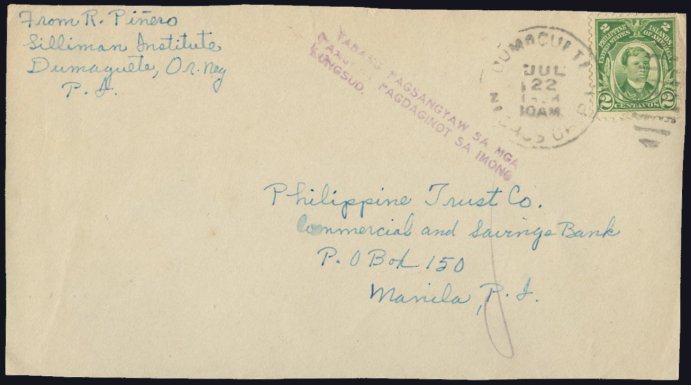 From R. Piñero
Silliman Institute
Dumaguete, Or. Neg
P. I.
TABANG PAGSANGYAW SA MGA
PAGDAGINOT SA IMONG
LONGSUD
DUMAGUETE
JUL
22
10AM
NEGROS OR
2 PHILIPPINE ISLANDS 2
UNITED STATES OF AMERICA
2 CENTAVOS 2
Philippine Trust Co.
Commercial and Savings Bank
P. O Box 150
Manila, P. I.